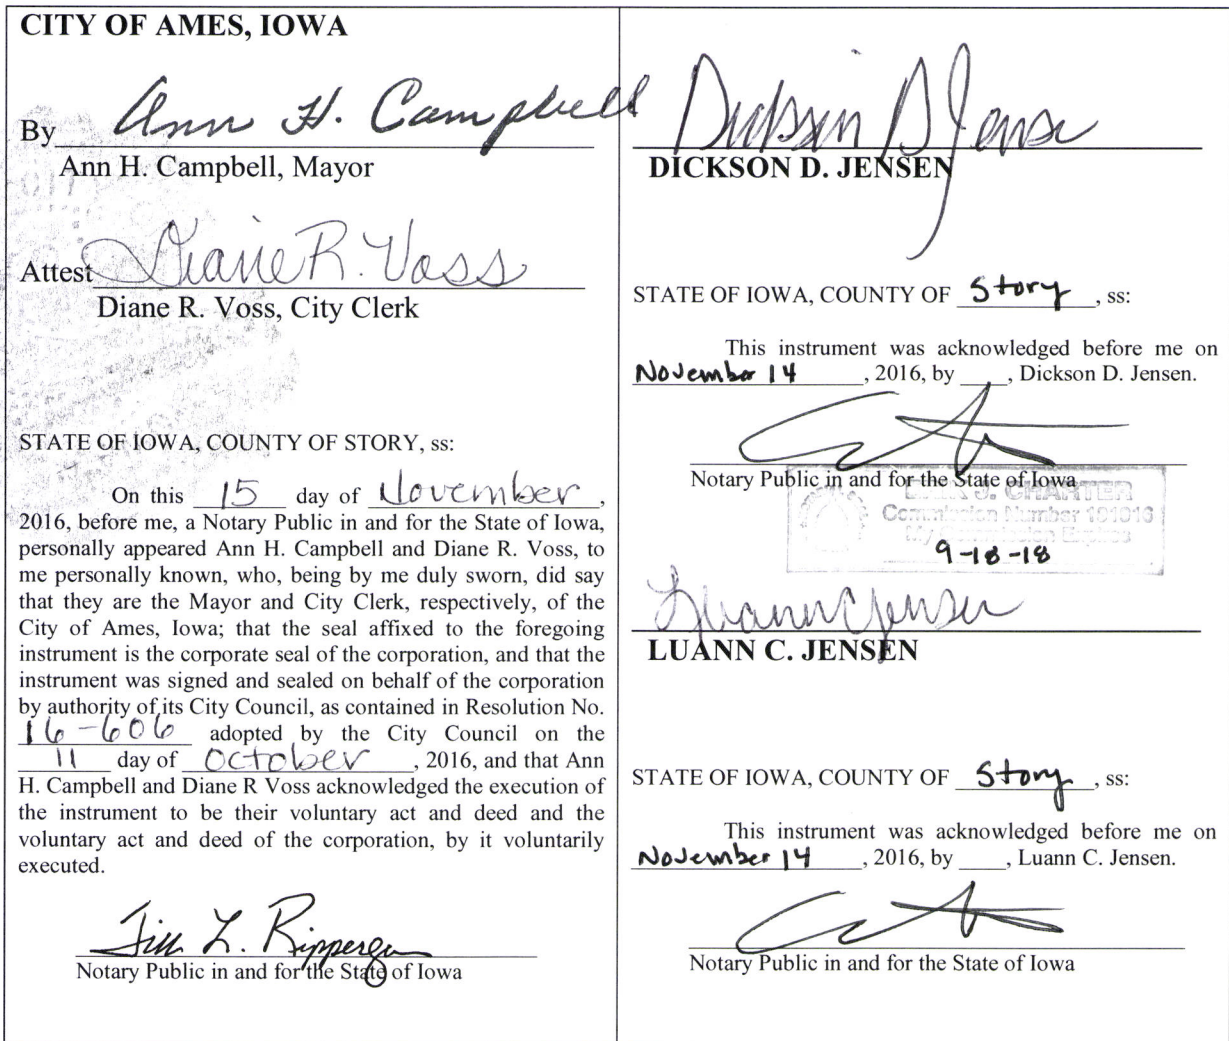 CITY OF AMES, IOWA
By Ann H. Campbell
Ann H. Campbell, Mayor
Attest Diane R. Voss
Diane R. Voss, City Clerk
STATE OF IOWA, COUNTY OF STORY, ss:
On this 15 day of November,
2016, before me, a Notary Public in and for the State of Iowa,
personally appeared Ann H. Campbell and Diane R. Voss, to
me personally known, who, being by me duly sworn, did say
that they are the Mayor and City Clerk, respectively, of the
City of Ames, Iowa; that the seal affixed to the foregoing
instrument is the corporate seal of the corporation, and that the
instrument was signed and sealed on behalf of the corporation
by authority of its City Council, as contained in Resolution No.
16-606 adopted by the City Council on the
11 day of October, 2016, and that Ann
H. Campbell and Diane R Voss acknowledged the execution of
the instrument to be their voluntary act and deed and the
voluntary act and deed of the corporation, by it voluntarily
executed.
Jill L. Ripperger
Notary Public in and for the State of Iowa
Dickson D Jensen
DICKSON D. JENSEN
STATE OF IOWA, COUNTY OF Story, ss:
This instrument was acknowledged before me on
November 14, 2016, by ____, Dickson D. Jensen.
Notary Public in and for the State of Iowa
J. CHARTER
Commission Number 181016
My Commission Expires
9-18-18
Luann C Jensen
LUANN C. JENSEN
STATE OF IOWA, COUNTY OF Story, ss:
This instrument was acknowledged before me on
November 14, 2016, by ____, Luann C. Jensen.
Notary Public in and for the State of Iowa